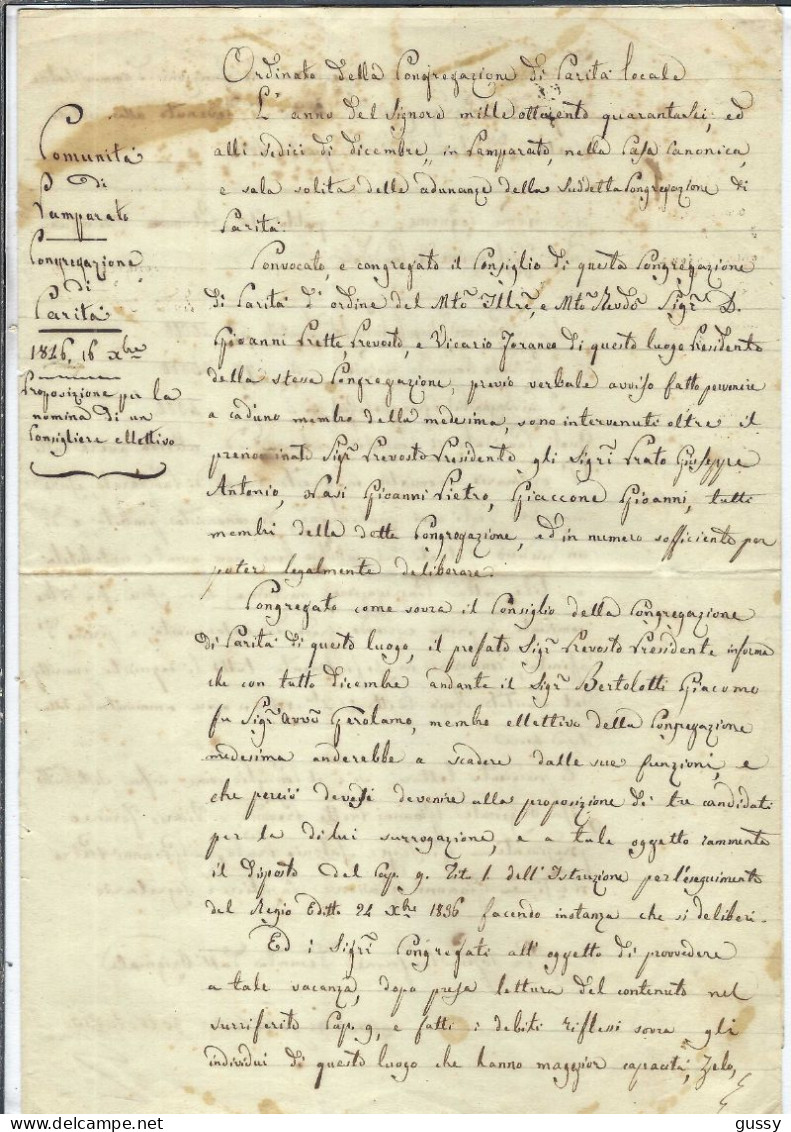 Comunità
di
Pamparato
Congregazione
di
Carità
1846, 16 Xbre
Proposizione per la
nomina di un
Consigliere ellettivo
Ordinato della Congregazione di Carità locale
L'anno del Signore mille ottocento quarantasei, ed
alli sedici di dicembre, in Pamparato, nella Casa Canonica,
e sala solita delle adunanze della suddetta Congregazione di
Carità.
Convocato, e congregato il Consiglio di questa Congregazione
di Carità d'ordine del Mto Illre, e Mto Revdo Sigr D.
Giovanni Prette, Prevosto, e Vicario Foraneo di questo luogo Presidente
della stessa Congregazione, previo verbale avviso fatto pervenire
a caduno membro della medesima, sono intervenuti oltre il
prenominato Sigr Prevosto Presidente gli Sigri Prato Giuseppe
Antonio, Nasi Gioanni Pietro, Giaccone Gioanni, tutti
membri della detta Congregazione, ed in numero sofficiente per
poter legalmente deliberare.
Congregato come sovra il Consiglio della Congregazione
di Carità di questo luogo, il prefato Sigr Prevosto Presidente informa
che con tutto dicembre andante il Sigr Bertolotti Giacomo
fu Sigr Avvo Gerolamo, membro ellettivo della Congregazione
medesima anderebbe a scadere dalle sue funzioni, e
che perciò devesi devenire alla proposizione di tre candidati
per la dilui surrogazione, e a tale oggetto rammenta
il disposto del Cap. 9. Tit. 1. dell'Istruzione per l'eseguimento
del Regio Editto 24 Xbre 1836 facendo instanza che si deliberi.
Ed i Sigri Congregati all'oggetto di provvedere
a tale vacanza, dopo presa lettura del contenuto nel
surriferito Cap. 9, e fatti i debiti riflessi sovra gli
individui di questo luogo che hanno maggior capacità, zelo,
gussy